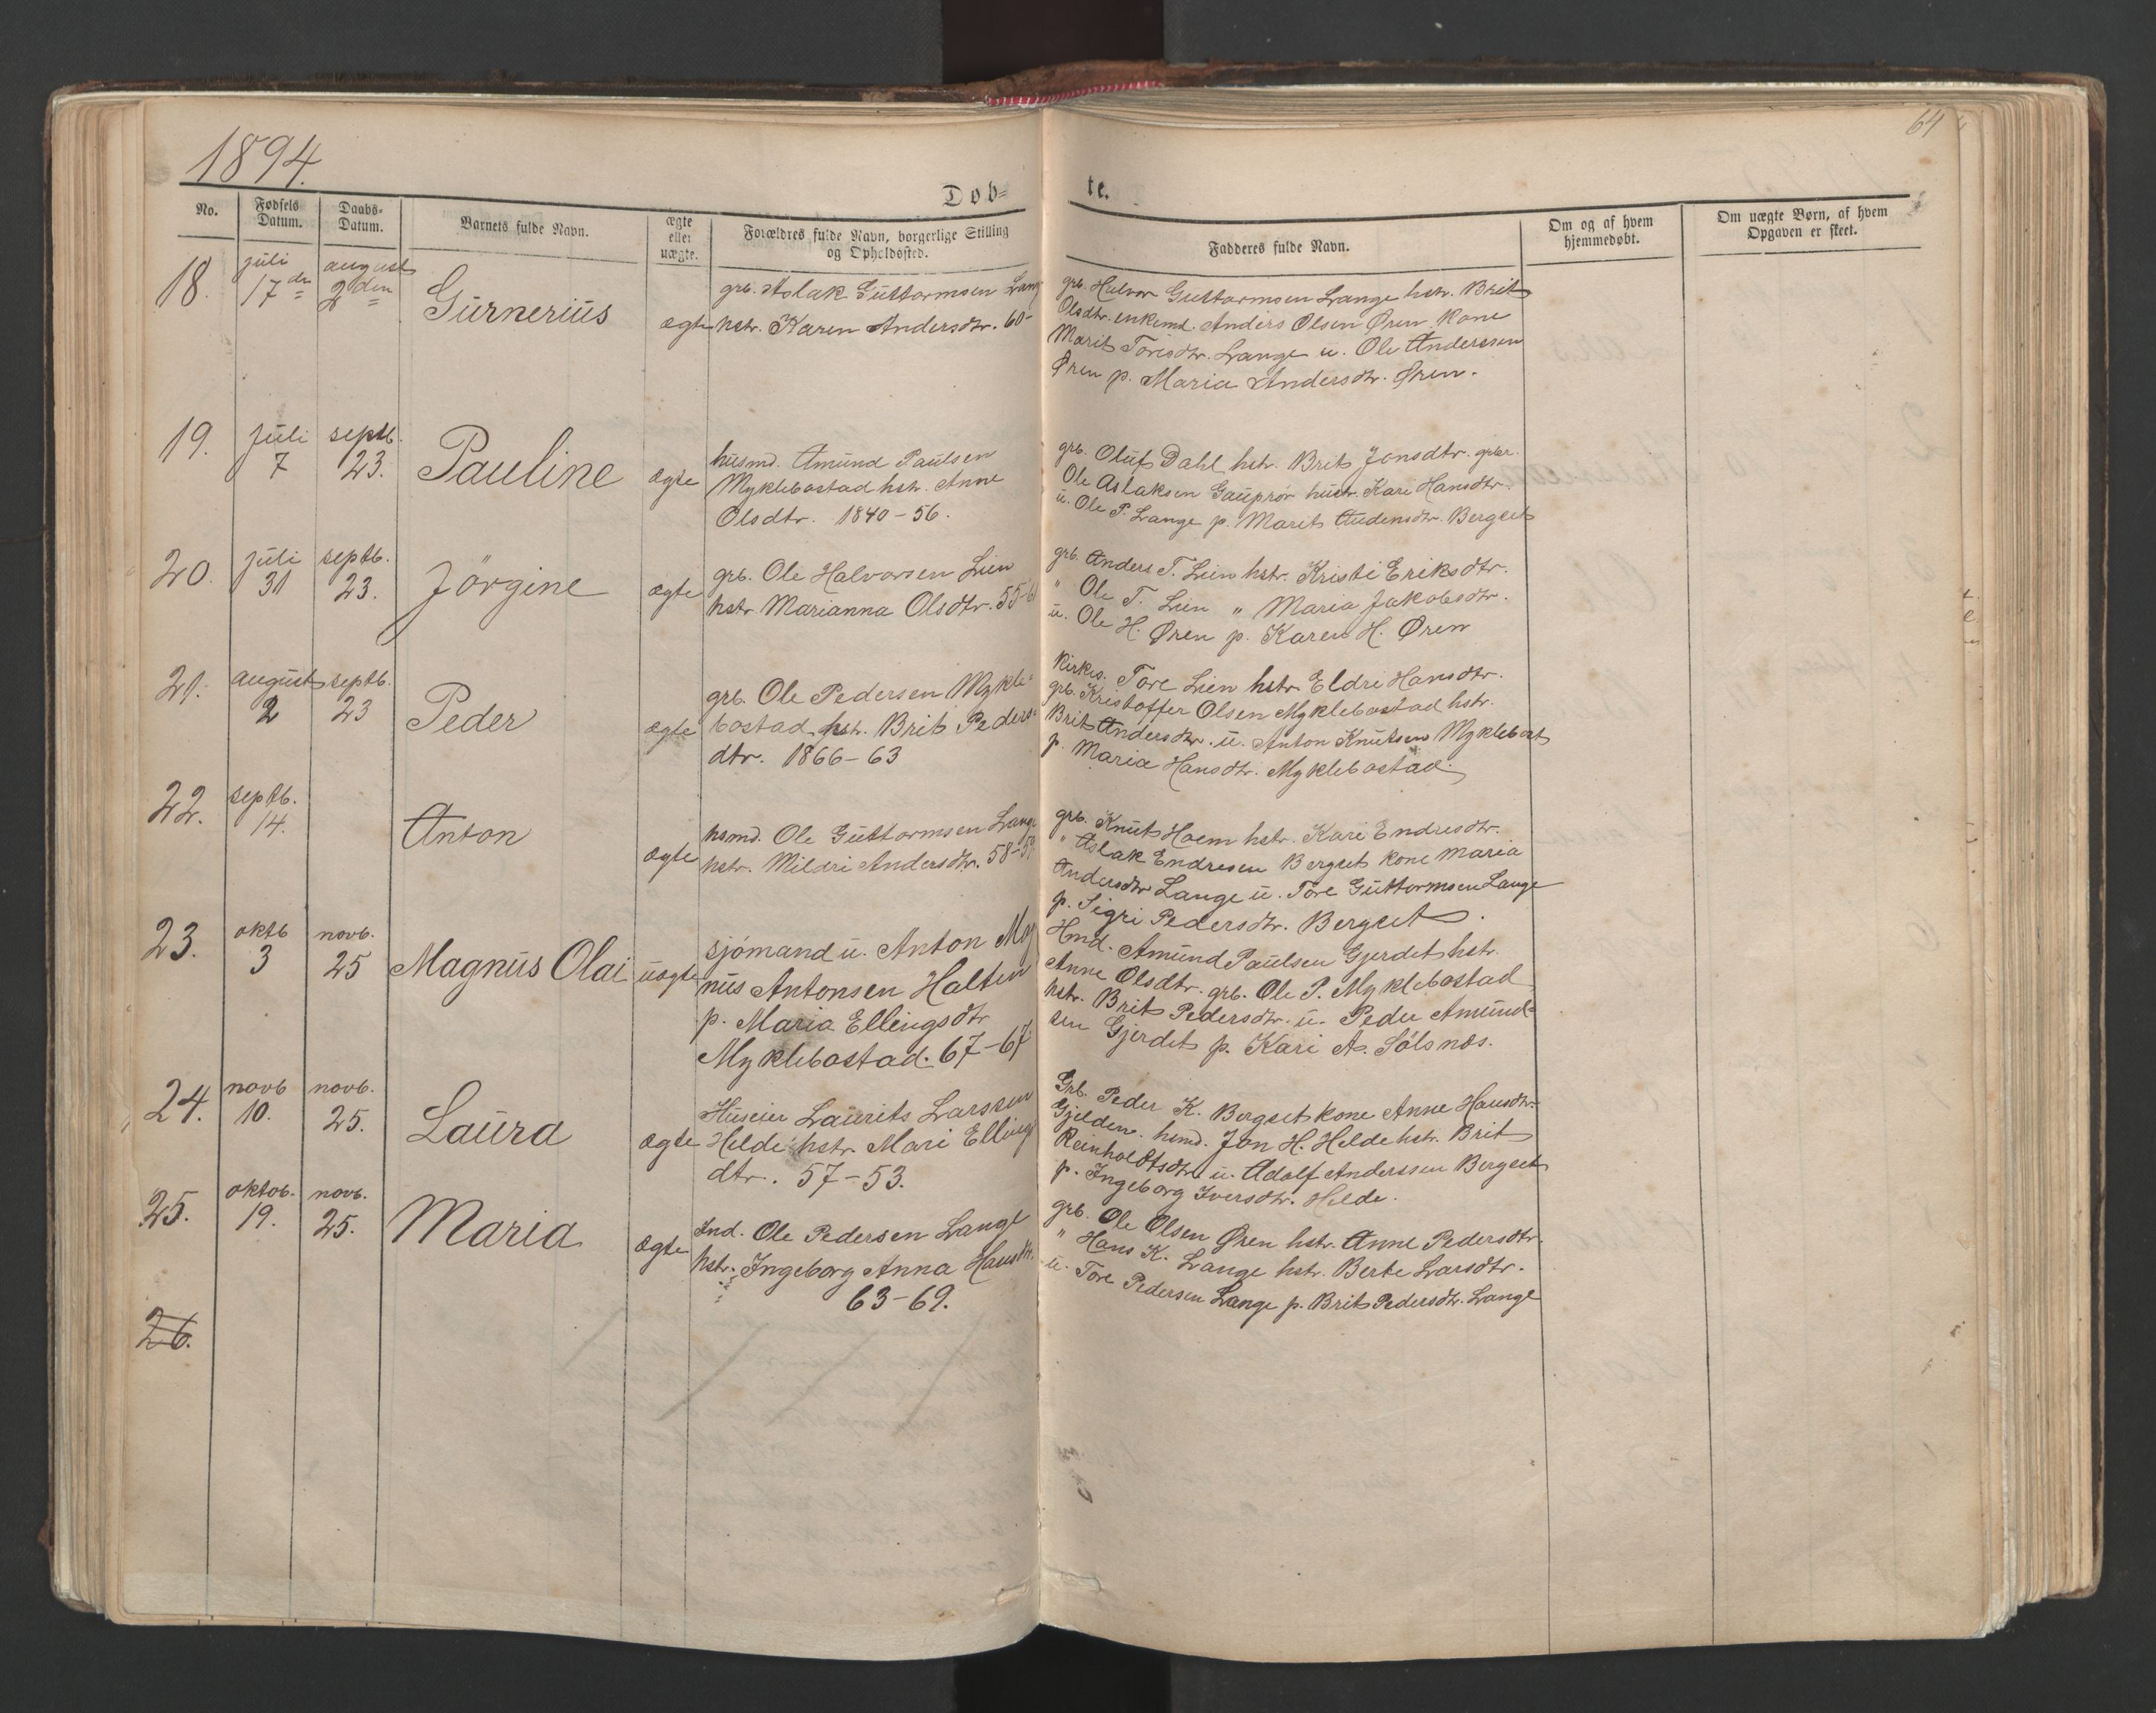 1894.
64
Døb=
te.
No.
Fødsels Datum.
Daabs- Datum.
Barnets fulde Navn.
ægte eller uægte.
Forældres fulde Navn, borgerlige Stilling og Opholdssted.
Fadderes fulde Navn.
Om og af hvem hjemmedøbt.
Om uægte Børn, af hvem Opgaven er skeet.
18. juli 17de august 2den Gurnerius ægte
grb. Aslak Guttormsen Lang
hstr. Karen Andersdtr. 60-
grb. Halvor Guttormsen Lange hstr. Brit
Olsdtr. enkemd. Anders Olsen Øren kone
Marit Toresdtr. Lange u. Ole Anderssen
Øren p. Maria Andersdtr. Øren.
19. juli 7 septb. 23. Pauline ægte
husmd. Amund Paulsen
Myklebostad hstr. Anne
Olsdtr. 1840-56.
grb. Oluf Dahl hstr. Brit Jonsdtr. grbr.
Ole Aslaksen Gauprør hustr. Kari Hansdtr.
u. Ole P. Lange p. Marit Audensdtr. Bergset
20. juli 31 septb. 23. Jörgine ægte
grb. Ole Halvorsen Lien
hstr Marianna Olsdtr. 55-6
grb. Anders T. Lien hstr. Kristi Eriksdtr.
" Ole T. Lien " Maria Jakobsdtr.
u. Ole H. Øren p. Karen H. Øren
21. august 2 septb. 23 Peder ægte
grb. Ole Pedersen Mykle=
bostad hstr. Brit Peders=
dtr. 1866-63
Kirkes. Tore Lien hstr. Eldri Hansdtr.
grb. Kristoffer Olsen Myklebostad hstr.
Brit Andersdtr. u. Anton Knutsen Myklebost
p. Maria Hansdtr. Myklebostad.
22. septb. 14. Anton ægte
husmd. Ole Guttormsen Lange
hstr. Mildri Andersdtr. 58-5
grb. Knut Hoem hstr. Kari Endresdtr.
" Aslak Endresen Bergset kone Maria
Andersdtr Lange u. Tore Guttormsen Lange
p. Sigri Pedersdtr. Bergset.
23. oktb 3 novb. 25 Magnus Olai uægte
sjömand u. Anton Mag
nus Antonsen Halten
p. Maria Ellingsdtr
Myklebostad. 67-67
Hmd. Amund Paulsen Gjerdet hstr.
Anne Olsdtr. grb. Ole P. Myklebostad
hstr. Brit Pedersdtr. u. Peder Amund=
sen Gjerdet p. Kari A. Sölsnæs.
24. novb 10. novb. 25. Laura ægte
Huseier Laurits Larssen
Helde hstr. Mari Ellings
dtr. 57-53.
Grb. Peder K. Bergset kone Anne Hansdtr.
Gjelden. hsmd. Jon H. Helde hstr. Brit
Reinholdtsdtr u. Adolf Anderssen Bergset
p. Ingeborg Iversdtr. Helde.
25. oktob. 19. novb. 25. Maria ægte
Ind. Ole Pedersen Lange
hstr. Ingeborg Anna Hansdtr.
63-69.
grb. Ole Olsen Øren hstr. Anne Pedersdtr.
" Hans K. Lange hstr. Berte Larsdtr.
u. Tore Pedersen Lange p. Brit Pedersdtr. Lange
26.